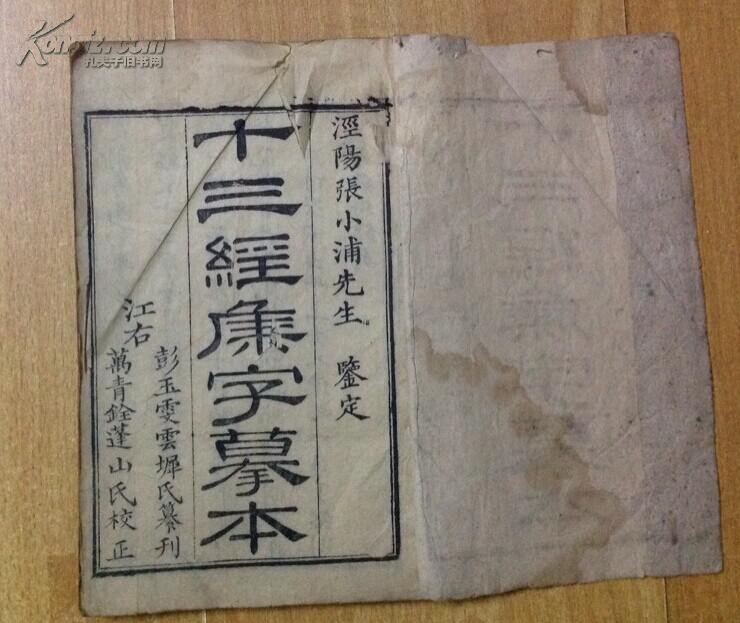 涇陽張小浦先生 鑒定
十三經集字摹本
江右
彭玉雯雲墀氏纂刊
萬青銓蓬山氏校正
Kongfz.com
孔夫子旧书网